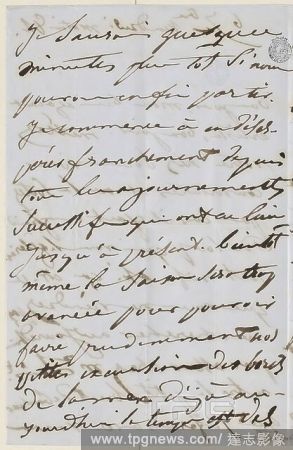 Je saurai quelques
minutes plus tôt si nous
pouvons enfin partir.
Je commence à en déses
pérer franchement depuis
tous les ajournements
successifs qui ont eu lieu
jusqu'à présent. bientôt
même la saison sera trop
avancée pour pouvoir
faire prudemment nos
petites excursions des bords
de la mer. déjà au
jourdhui le temps est
www.tpgnews.com / 達志影像